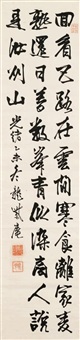 回看巴路在雲間寒食離家麥
熟還日暮數峯青似染商人說
是汝州山 光緒乙未冬